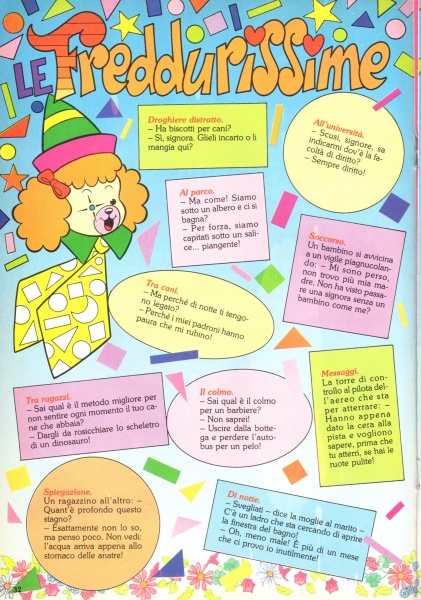 LE Freddurissime
Droghiere distratto.
– Ha biscotti per cani?
– Sì, signora. Glieli incarto o li
mangia qui?
All'università.
– Scusi, signore, sa
indicarmi dov'è la fa-
coltà di diritto?
– Sempre diritto!
Al parco.
– Ma come! Siamo
sotto un albero e ci si
bagna?
– Per forza, siamo
capitati sotto un sali-
ce... piangente!
Soccorso.
Un bambino si avvicina
a un vigile piagnucolan-
do: – Mi sono perso,
non trovo più mia ma-
dre. Non ha visto passa-
re una signora senza un
bambino come me?
Tra cani.
– Ma perché di notte ti tengo-
no legato?
– Perché i miei padroni hanno
paura che mi rubino!
Tra ragazzi.
– Sai qual è il metodo migliore per
non sentire ogni momento il tuo ca-
ne che abbaia?
– Dargli da rosicchiare lo scheletro
di un dinosauro!
Il colmo.
– Sai qual è il colmo
per un barbiere?
– Non saprei!
– Uscire dalla botte-
ga e perdere l'auto-
bus per un pelo!
Messaggi.
La torre di con-
trollo al pilota del-
l'aereo che sta
per atterrare: –
Hanno appena
dato la cera alla
pista e vogliono
sapere, prima che
tu atterri, se hai le
ruote pulite!
Spiegazione.
Un ragazzino all'altro: –
Quant'è profondo questo
stagno?
– Esattamente non lo so,
ma penso poco. Non vedi:
l'acqua arriva appena allo
stomaco delle anatre!
Di notte.
– Svegliati – dice la moglie al marito –
C'è un ladro che sta cercando di aprire
la finestra del bagno!
– Oh, meno male! È più di un mese
che ci provo io inutilmente!
32